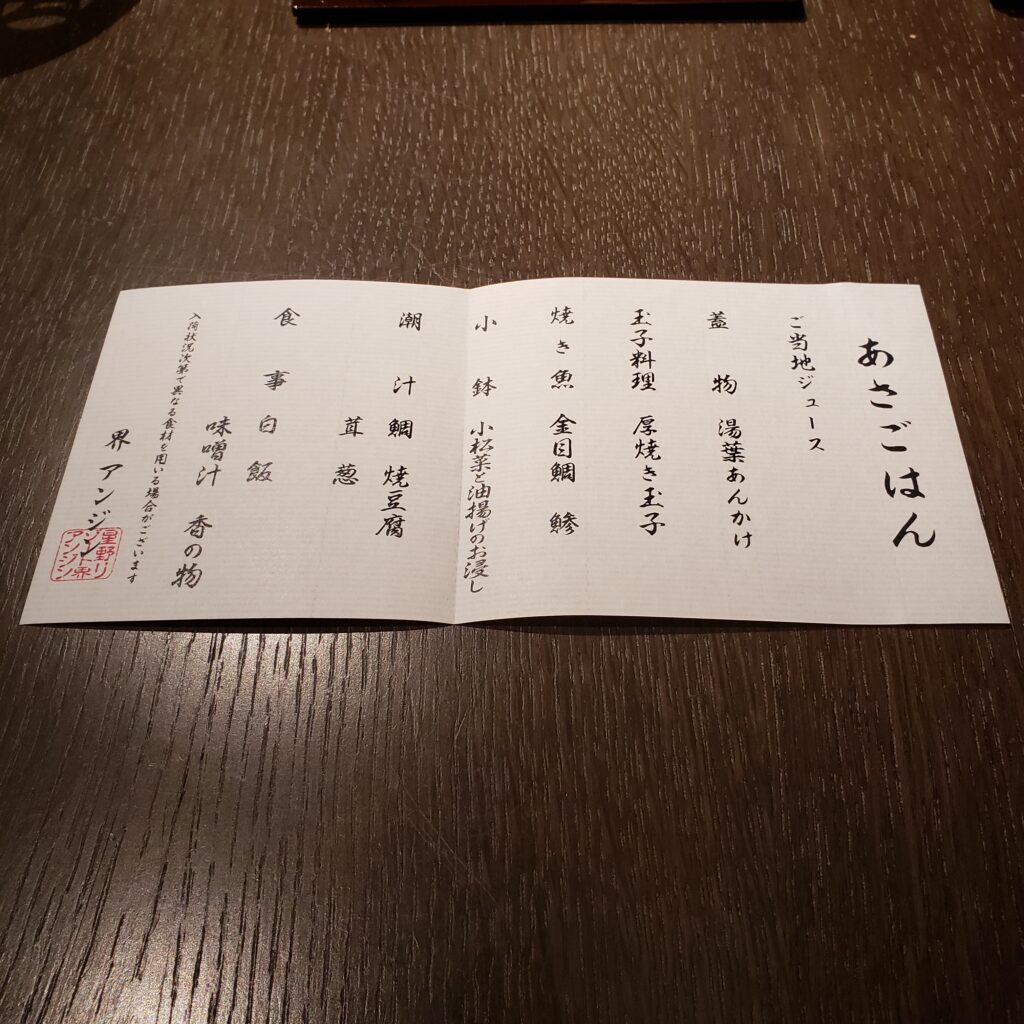 あさごはん
ご当地ジュース
蓋物 湯葉あんかけ
玉子料理 厚焼き玉子
焼き魚 金目鯛 鯵
小鉢 小松菜と油揚げのお浸し
潮汁 鯛 焼豆腐
茸 葱
食事 白飯
味噌汁 香の物
入荷状況次第で異なる食材を用いる場合がございます
界 アンジン
星野リ
ゾート界
アンジン